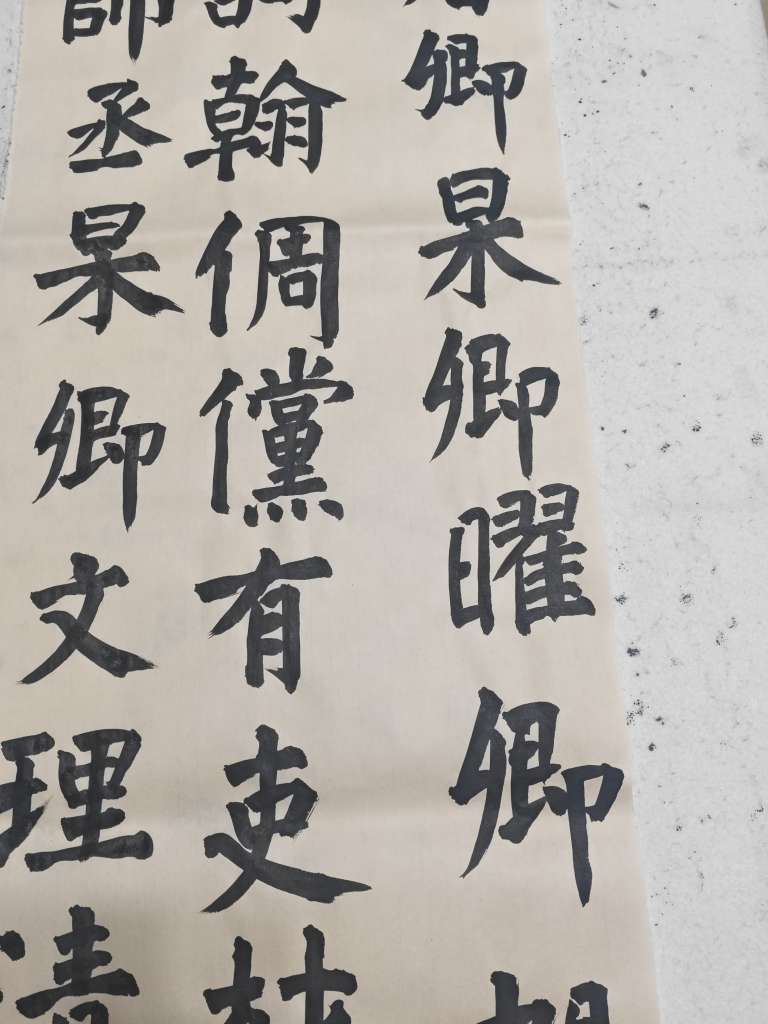 卿杲卿曜卿旭
詞翰倜儻有吏材
師丞杲卿文理清